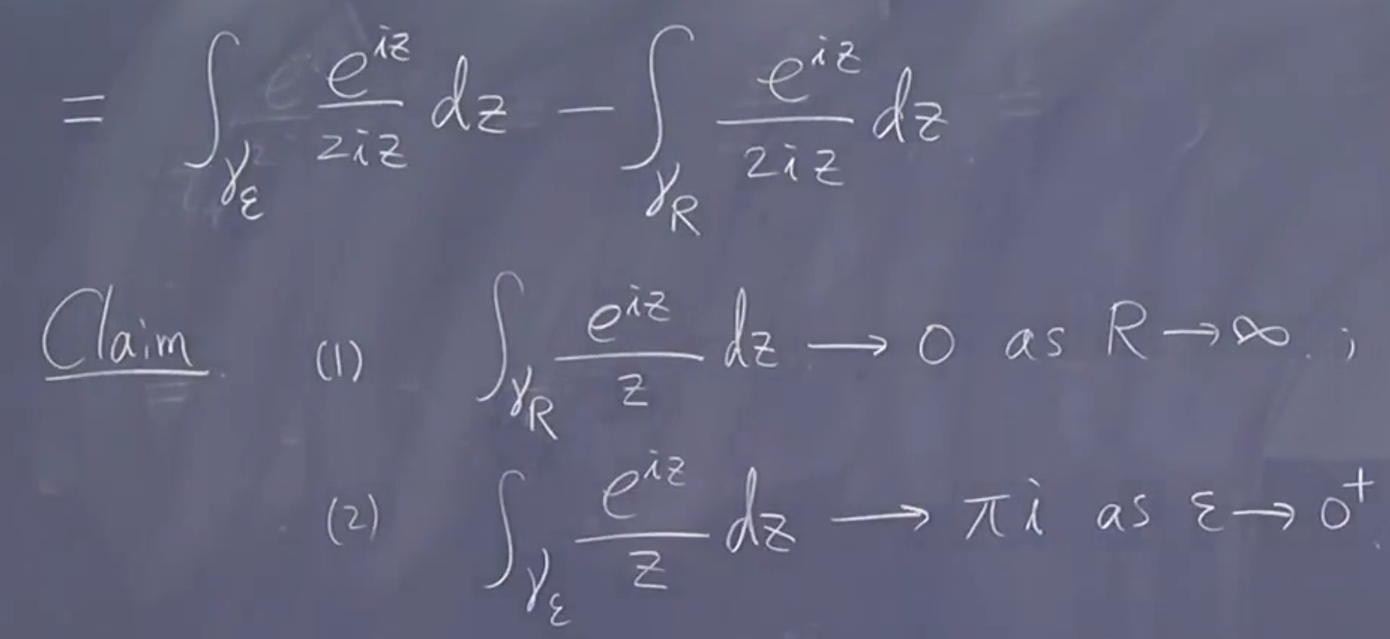 = ∫_{γ_ε} e^{iz}/(2iz) dz − ∫_{γ_R} e^{iz}/(2iz) dz
Claim (1) ∫_{γ_R} e^{iz}/z dz → 0 as R → ∞. ;
(2) ∫_{γ_ε} e^{iz}/z dz → πi as ε → 0⁺.